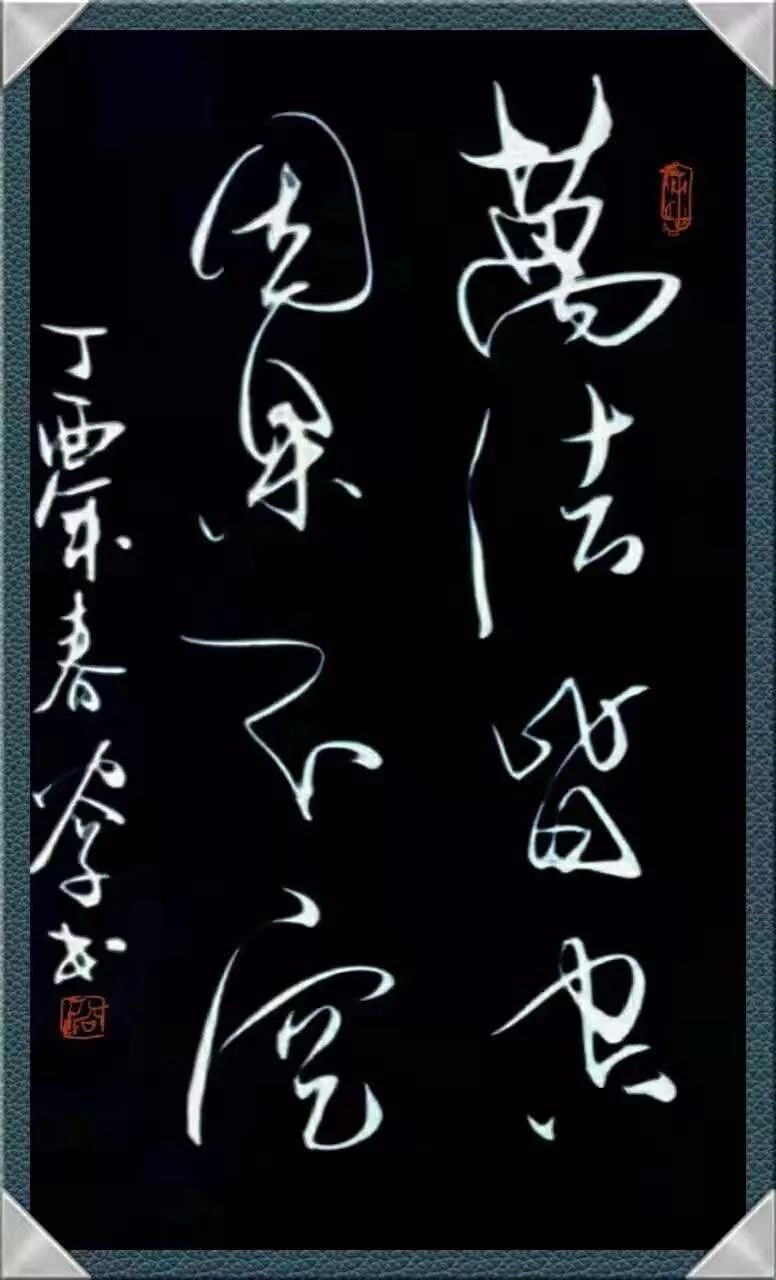 萬法皆空
因果不空
丁酉年春 書